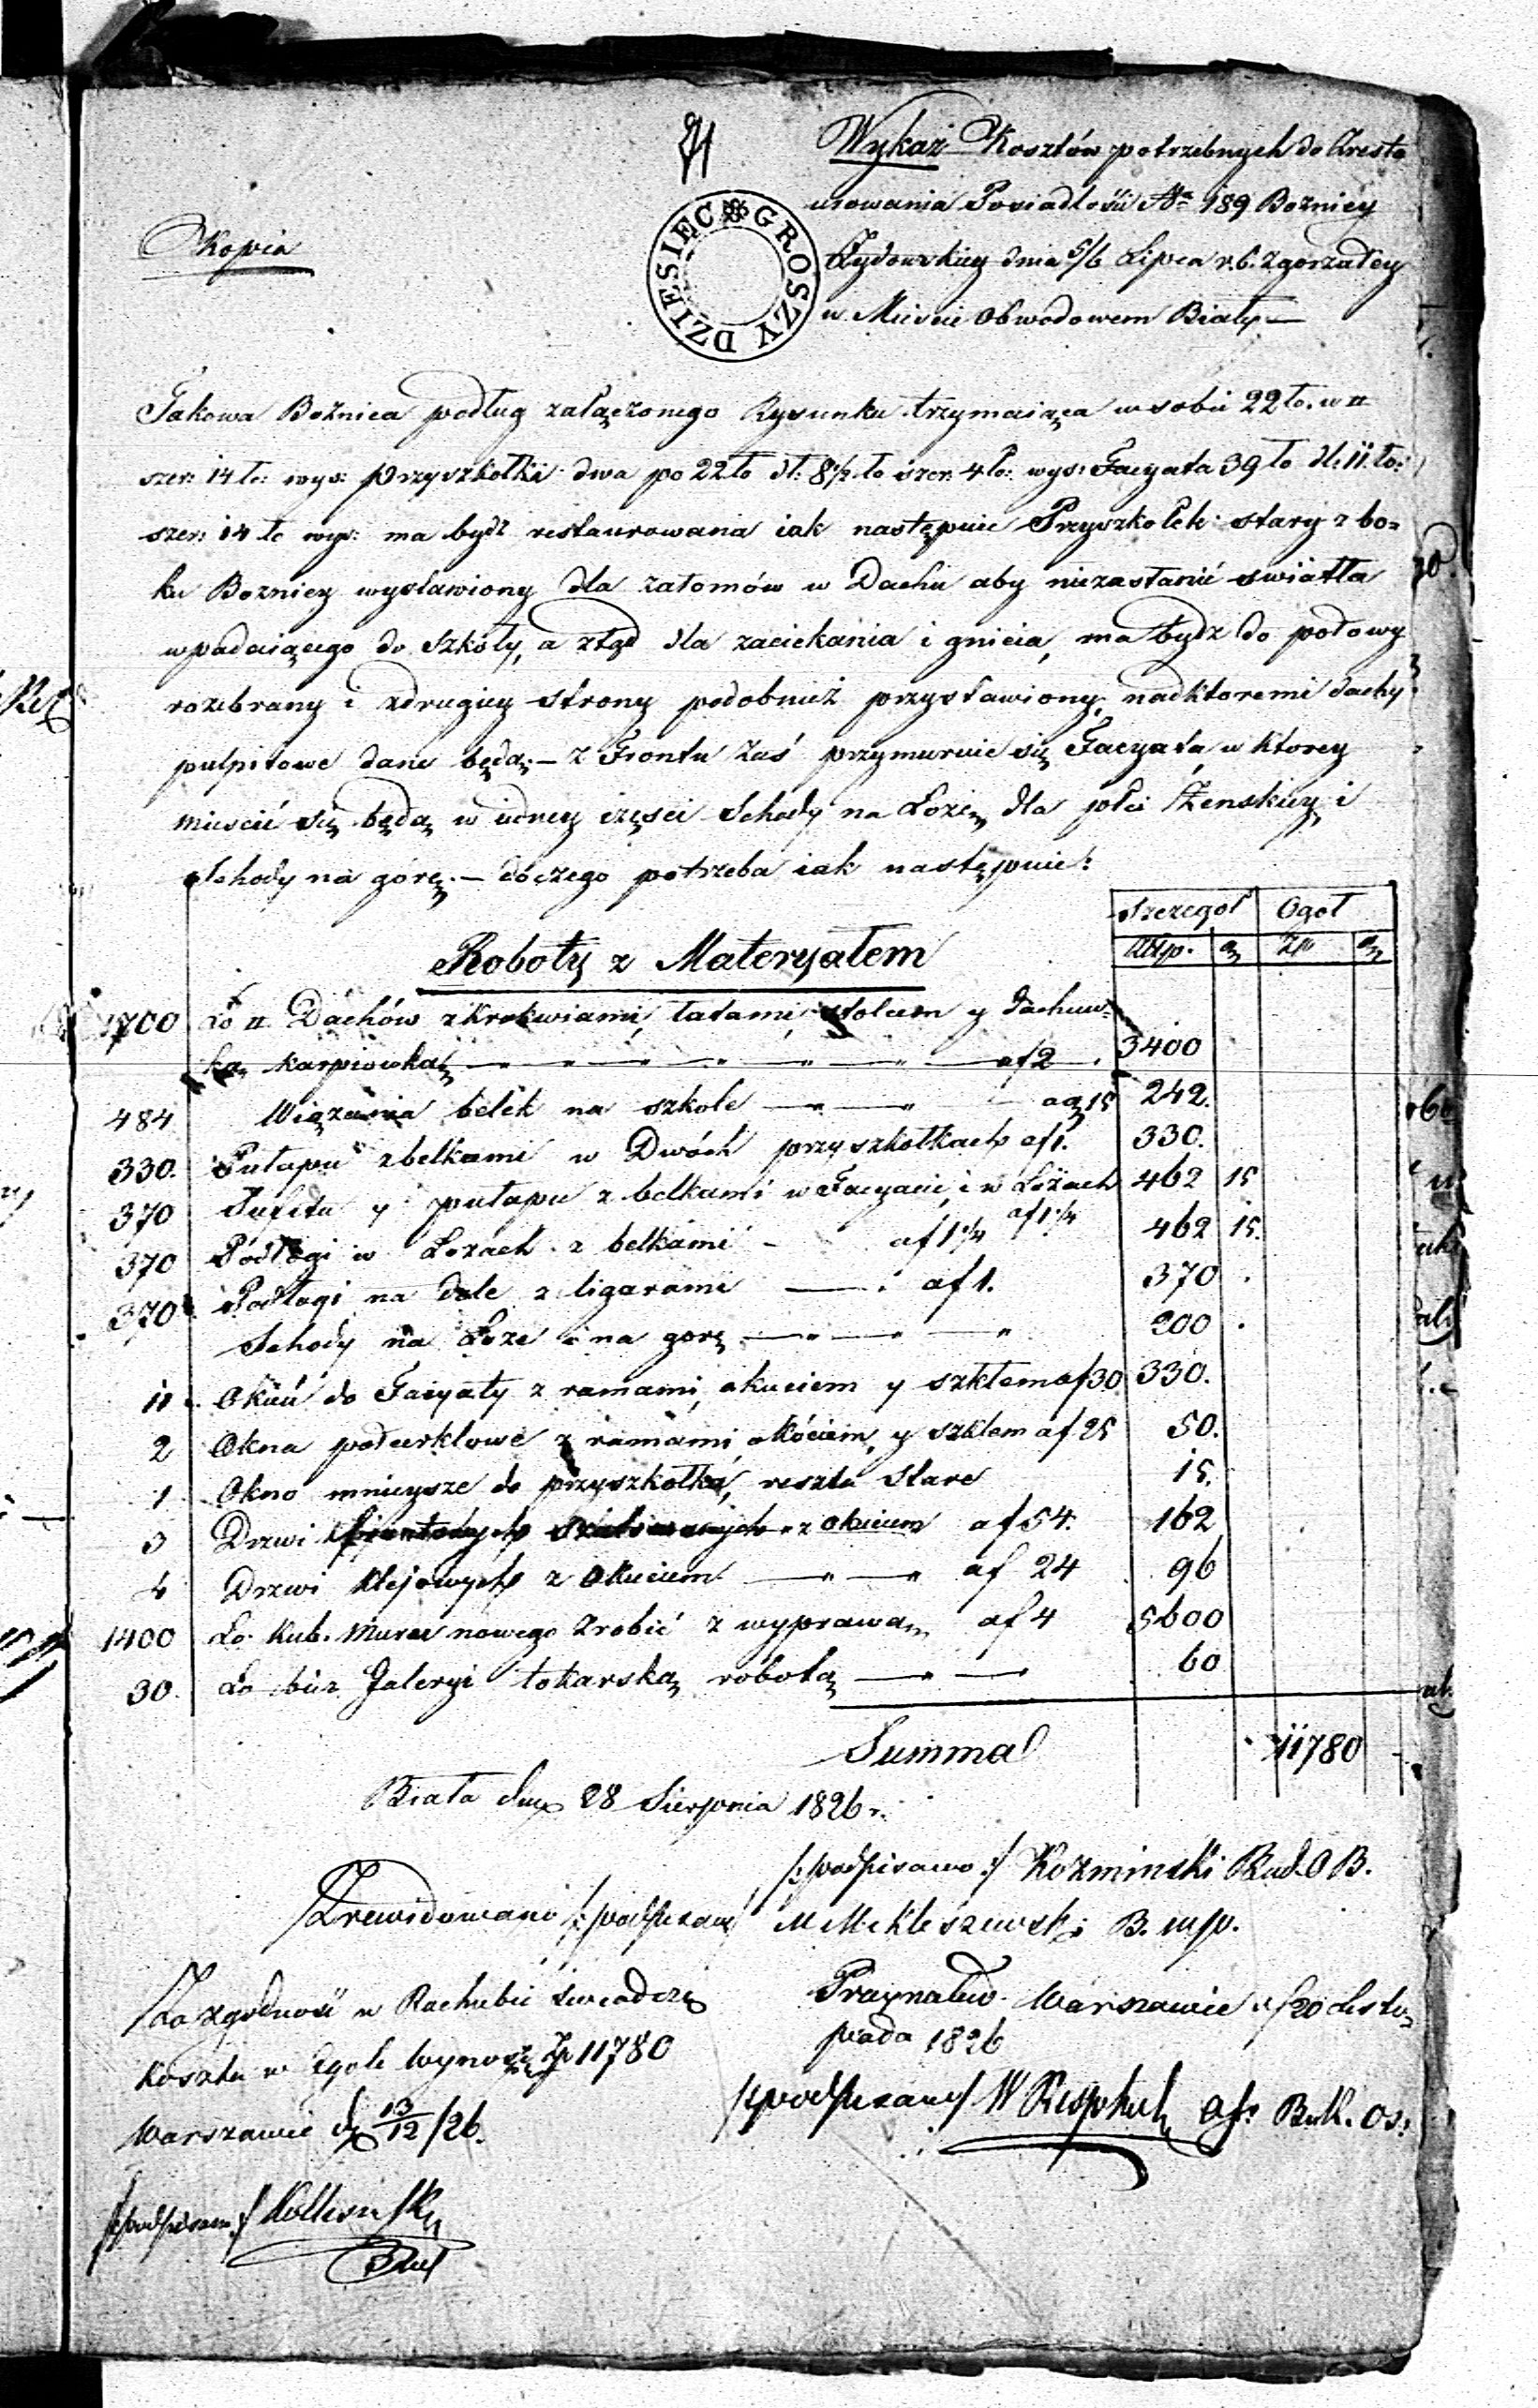 Wykaz Kosztów potrzebnych do Aresto
urowania Posiadłości No 189 Boznicy
Żydowskiey dnia 5/6 Lipca r.b. zgorzałey
w Mieście Obwodowem Biały —
Kopia
DZIESIĘC GROSZY
Takowa Boznica podług załączonego Rysunku trzymaiąca w sobie 22 ło. w □
szer: 14 ło: wys: Przyszkółki dwa po 22 ło dł: 8 1/2 ło szer: 4 ło: wys: Facyata 39 ło dł: 11. ło:
szer: 14 ło wys: ma bydź restaurowania iak następuie Przyszkółek stary z bo=
ku Boznicy wystawiony dla załomów w Dachu aby niezasłanić swiatła
wpadaiącego do Szkoły, a ztąd dla zaciekania i gnicia, ma bydz do połowy
rozebrany i zdrugiey strony podobnież przystawiony, nadktoremi dachy
pulpitowe dane będą. — Z Frontu zaś przymuruie się Facyata, w ktorey
mieścić się będą w iedney części Schody na Lozę, dla płci Żenskiey, i
Schody na górę. — do czego potrzeba iak następuie:
Szczegół Ogoł
Złp. g Zp g
Roboty z Materyałem
1700 Ło □ Dachów z Krokwiami, łatami, stolcem y dachuw-
ką karpiowką — " — " — " — af 2 3400
484 Wiązania belek na szkole — " — " — a g 15 242.
330. Pułapu z belkami w Dwóch przyszkółkach af 1. 330.
370 Sufitu y pułapu z belkami w Facyacie i w Lożach af 1 1/4 462 15
370 Podłogi w Lozach z belkami - af 1 1/4 462 15.
370 Podłogi na dole z ligarami — . af 1. 370 .
Schody na Loze i na gorę — " — " — " 200 .
11 Okień do Facyaty z ramami, okuciem y szkłem af 30 330.
2 Okna podcerklowe z ramami, okóciem, y szklem af 25 50.
1 Okno mnieysze do przyszkółka, reszta stare 15.
3 Drzwi z okuciem af 54. 162
4 Drzwi klejowych z Okuciem — " — " af 24 96
1400 Ło. Kub. Muru nowego zrobić z wyprawą af 4 5600
30. Ło bież Galeryi tokarską robotą — " — 60
Summa 11780
Biała dnia 28 Sierpnia 1826 r.
/: podpisano :/ Kozminski Bud. O B.
Zrewidowano /: podpisany M Mikleszewski B. mp.
Za zgodność w Rachubie świadczę
Kosztu w Ogole Wynoszę Zp 11780
Warszawie d. 13/12 /26.
w Warszawie d/20 Listo=
pada 1826
/: podpisany/ W
/podpisano :/